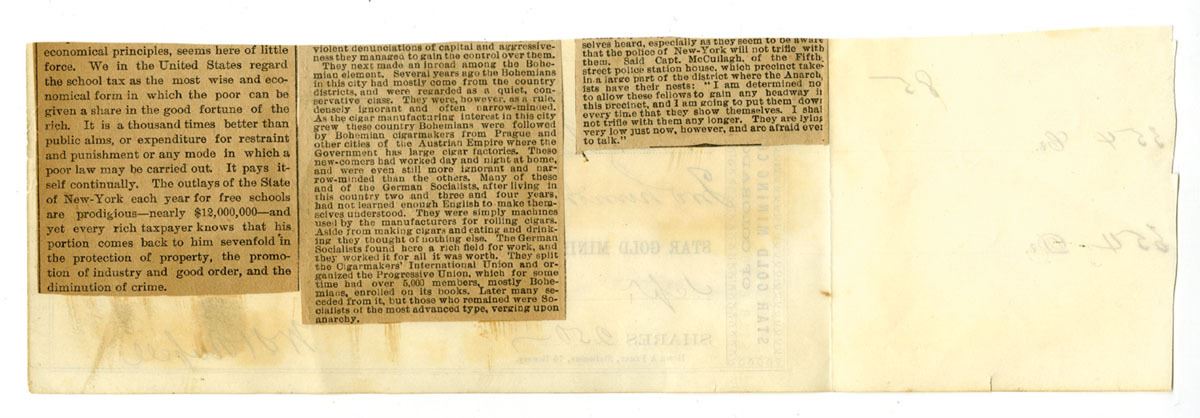 economical principles, seems here of little
force. We in the United States regard
the school tax as the most wise and eco-
nomical form in which the poor can be
given a share in the good fortune of the
rich. It is a thousand times better than
public alms, or expenditure for restraint
and punishment or any mode in which a
poor law may be carried out. It pays it-
self continually. The outlays of the State
of New-York each year for free schools
are prodigious—nearly $12,000,000—and
yet every rich taxpayer knows that his
portion comes back to him sevenfold in
the protection of property, the promo-
tion of industry and good order, and the
diminution of crime.
violent denunciations of capital and aggressive-
ness they managed to gain the control over them.
They next made an inroad among the Bohe-
mian element. Several years ago the Bohemians
in this city had mostly come from the country
districts, and were regarded as a quiet, con-
servative class. They were, however, as a rule,
densely ignorant and often narrow-minded.
As the cigar manufacturing interest in this city
grew these country Bohemians were followed
by Bohemian cigarmakers from Prague and
other cities of the Austrian Empire where the
Government has large cigar factories. These
new-comers had worked day and night at home,
and were even still more ignorant and nar-
row-minded than the others. Many of these
and of the German Socialists, after living in
this country two and three and four years,
had not learned enough English to make them-
selves understood. They were simply machines
used by the manufacturers for rolling cigars.
Aside from making cigars and eating and drink-
ing they thought of nothing else. The German
Socialists found here a rich field for work, and
they worked it for all it was worth. They split
the Cigarmakers' International Union and or-
ganized the Progressive Union, which for some
time had over 5,000 members, mostly Bohe-
mians, enrolled on its books. Later many se-
ceded from it, but those who remained were So-
cialists of the most advanced type, verging upon
anarchy.
selves heard, especially as they seem to be aware
that the police of New-York will not trifle with
them. Said Capt. McCullagh, of the Fifth
street police station house, which precinct take
in a large part of the district where the Anarch
ists have their nests: "I am determined no
to allow these fellows to gain any headway i
this precinct, and I am going to put them down
every time that they show themselves. I shal
not trifle with them any longer. They are lying
very low just now, however, and are afraid even
to talk."
STAR GOLD MINI
SHARES 250
STAR GOLD MINING C